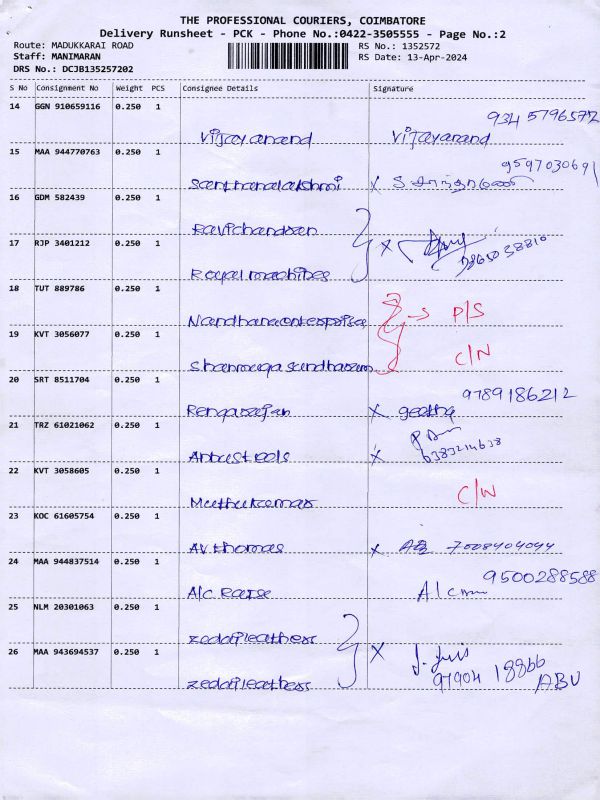 THE PROFESSIONAL COURIERS, COIMBATORE
Delivery Runsheet - PCK - Phone No.:0422-3505555 - Page No.:2
Route: MADUKKARAI ROAD RS No.: 1352572
Staff: MANIMARAN RS Date: 13-Apr-2024
DRS No.: DCJB135257202
S No Consignment No Weight PCS Consignee Details Signature
14 GGN 910659116 0.250 1
934 5796572
Vijayanand Vijayanand
15 MAA 944770763 0.250 1
9597030691
Santhanalakshmi x
16 GDM 582439 0.250 1
Ravichandran
17 RJP 3401212 0.250 1
x
Royal machines
18 TUT 889786 0.250 1
Nandhana enterprises P/S
19 KVT 3056077 0.250 1
Shanmuga sundharam C/N
20 SRT 8511704 0.250 1
9789186212
Rengarajan x geetha
21 TRZ 61021062 0.250 1
Anbu steels x 6383214638
22 KVT 3058605 0.250 1
C/N
Muthukumar
23 KOC 61605754 0.250 1
AV thomas x 7008404044
24 MAA 944837514 0.250 1
9500288588
A/c Raise
25 NLM 20301063 0.250 1
zedapleathers
26 MAA 943694537 0.250 1
x
97904 18866
zedapleathers ABU